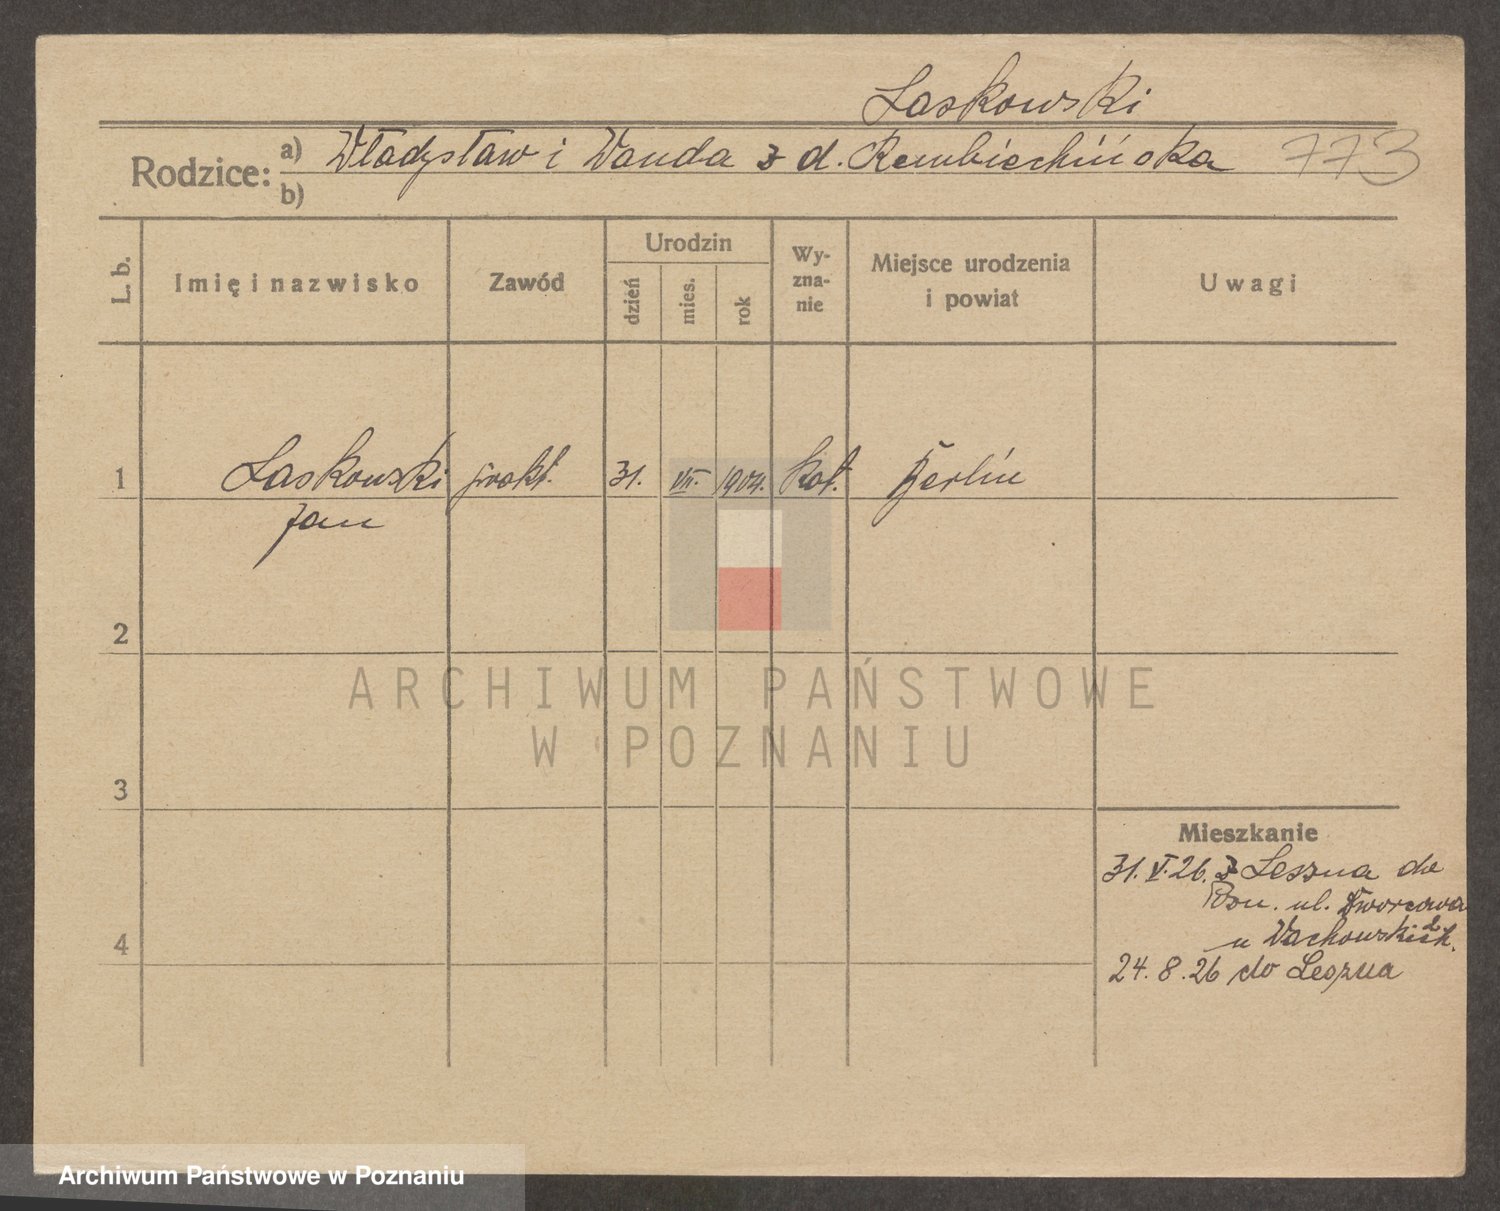 Laskowski
Rodzice: a) Władysław i Wanda z d. Rembiechińska 773
b)
L. b. Imię i nazwisko Zawód Urodzin dzień mies. rok Wyznanie Miejsce urodzenia i powiat Uwagi
1 Laskowski prakt. 31. VII. 1904. kat. Berlin
Jan
2
ARCHIWUM PAŃSTWOWE
W POZNANIU
3
Mieszkanie
31. V. 26. z Leszna do
Pozn. ul. Dworcowa
4 u Wachowskich.
24. 8. 26 do Leszna
Archiwum Państwowe w Poznaniu